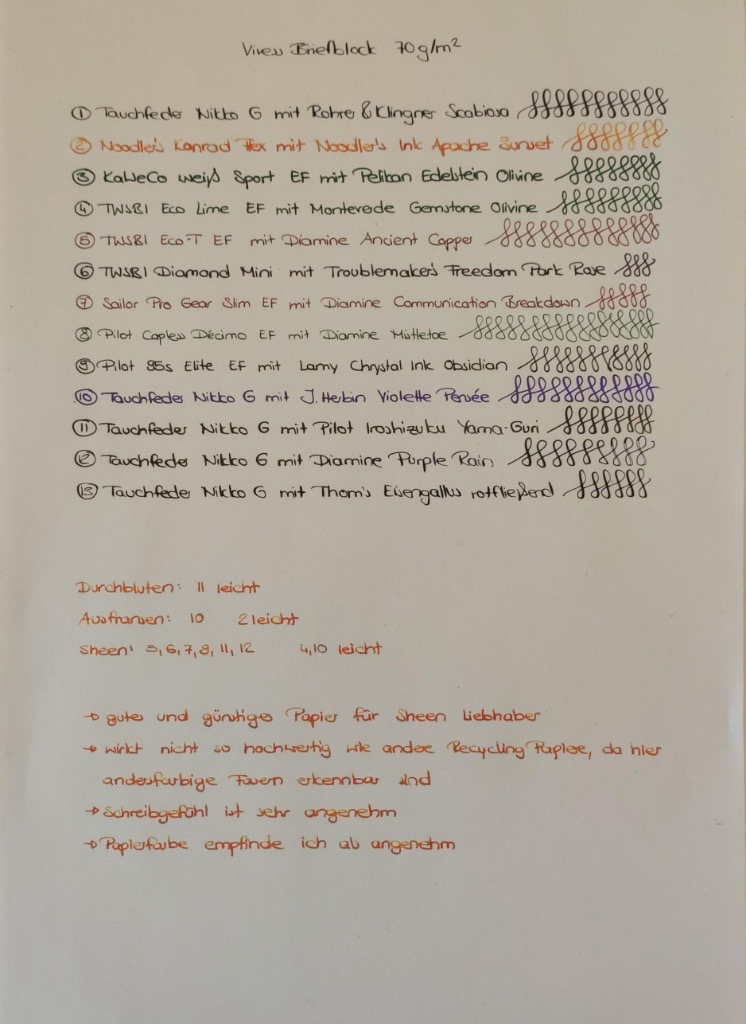 Viress Briefblock 70g/m²
① Tauchfeder Nikko G mit Rohrer & Klingner Scabiosa
② Noodler's Konrad Flex mit Noodler's Ink Apache Sunset
③ KaWeCo weiß Sport EF mit Pelikan Edelstein Olivine
④ TWSBI Eco Lime EF mit Monteverde Gemstone Olivine
⑤ TWSBI Eco-T EF mit Diamine Ancient Copper
⑥ TWSBI Diamond Mini mit Troublemakers Freedom Park Rose
⑦ Sailor Pro Gear Slim EF mit Diamine Communication Breakdown
⑧ Pilot Capless Décimo EF mit Diamine Mistletoe
⑨ Pilot 95s Elite EF mit Lamy Chrystal Ink Obsidian
⑩ Tauchfeder Nikko G mit J. Herbin Violette Pensée
⑪ Tauchfeder Nikko G mit Pilot Iroshizuku Yama-Guri
⑫ Tauchfeder Nikko G mit Diamine Purple Rain
⑬ Tauchfeder Nikko G mit Thom's Eisengallus rotfließend
Durchbluten: 11 leicht
Ausfransen: 10 2 leicht
Sheen: 5, 6, 7, 9, 11, 12 4, 10 leicht
→ gutes und günstiges Papier für Sheen Liebhaber
→ wirkt nicht so hochwertig wie andere Recycling Papiere, da hier
andersfarbige Fasern erkennbar sind
→ Schreibgefühl ist sehr angenehm
→ Papierfarbe empfinde ich als angenehm